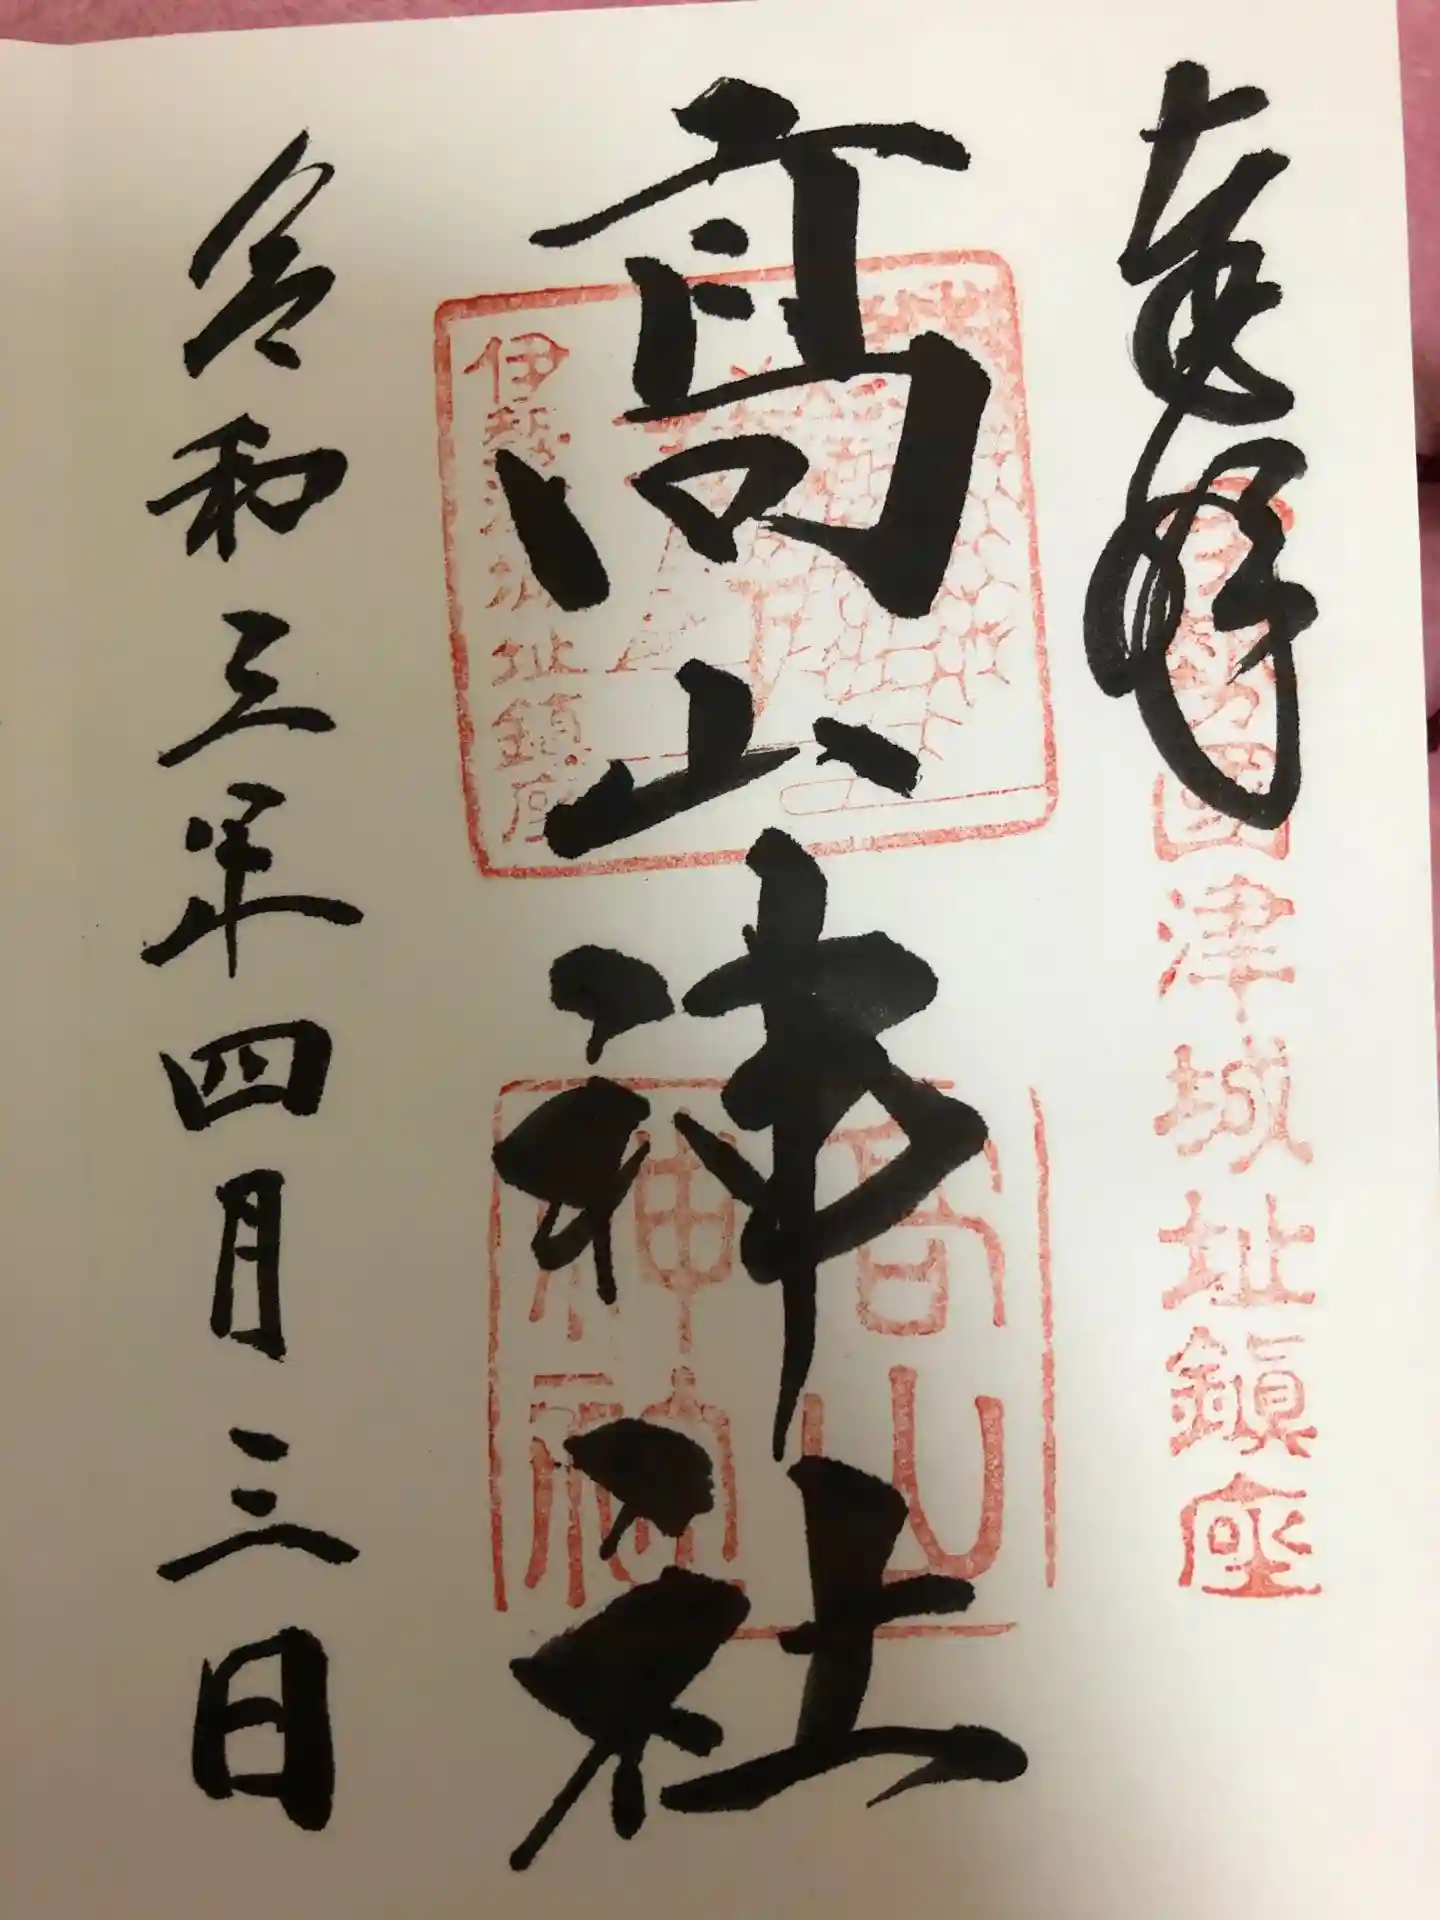 奉拝
伊勢國津城址鎮座
髙山神社
伊勢津城址鎮座
高山
神社
令和三年四月三日